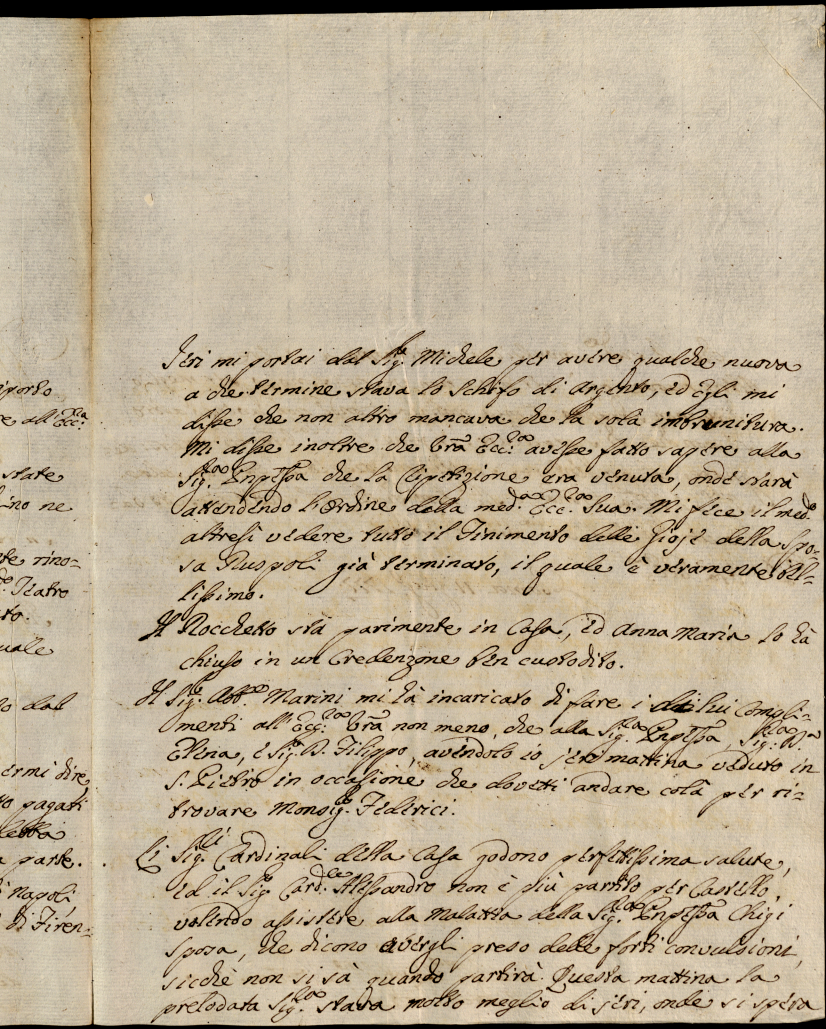 iporto
e all' Ecc:za
state
ino ne
te rino-
Teatro
to.
uale
o dal
ermi dire
to pagati
letta
a parte.
i Napoli
di Firen-
Jeri mi portai dal Sig.re Michele per avere qualche nuova
a che termine stava lo Schifo di Argento, ed Egli mi
disse che non altro mancava che la sola imbrunitura.
Mi disse inoltre che Vrã Ecc:za avesse fatto sapere alla
Sig.ra Pnpessa che la Ripetizione era venuta, onde starà
attendendo l'Ordine della med.a Ecc:za Sua. Mi fece il med.o
altresi vedere tutto il Finimento delle Gioje della Spo-
sa Ruspoli già terminato, il quale è veramente bel-
lissimo.
Il Rocchetto stà parimente in Casa, ed Anna Maria lo hà
chiuso in un Credenzone ben custodito.
Il Sig.r Abb.e Marini mi hà incaricato di fare i di lui Compli-
menti all' Ecc:za Vrã non meno, che alla Sig.ra Pnpessa, Sig.ra D.a
Elena, e Sig.r D. Filippo, avendolo io jeri mattina veduto in
S. Pietro in occasione che dovetti andare colà per ri-
trovare Monsig.r Federici.
Li Sig.ri Cardinali della Casa godono perfettissima salute,
ed il Sig.r Card.le Alessandro non è più partito per Castello,
volendo assistere alla Malattia della Sig.ra Pnpessa Chigi
sposa, che dicono avergli preso delle forti convulsioni,
sicchè non si sà quando partirà. Questa mattina la
prelodata Sig.ra stava molto meglio di jeri, onde si spera